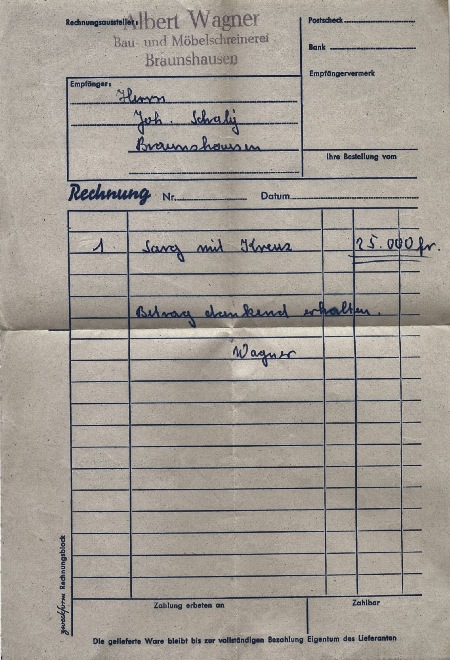 Rechnungsaussteller:
Albert Wagner
Bau- und Möbelschreinerei
Braunshausen
Postscheck
Bank
Empfängervermerk
Ihre Bestellung vom
Empfänger:
Herrn
Joh. Schalÿ
Braunshausen
Rechnung Nr. Datum
1 Sarg mit Kreuz 25.000 fr.
Betrag dankend erhalten.
Wagner
Rechnungsblock
Zahlung erbeten an
Zahlbar
Die gelieferte Ware bleibt bis zur vollständigen Bezahlung Eigentum des Lieferanten